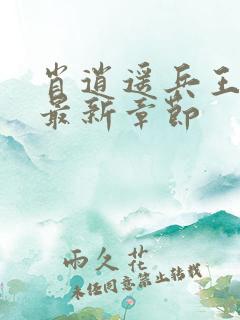 肖逍遥兵王
最新章节
雨久花
未经同意禁止转载